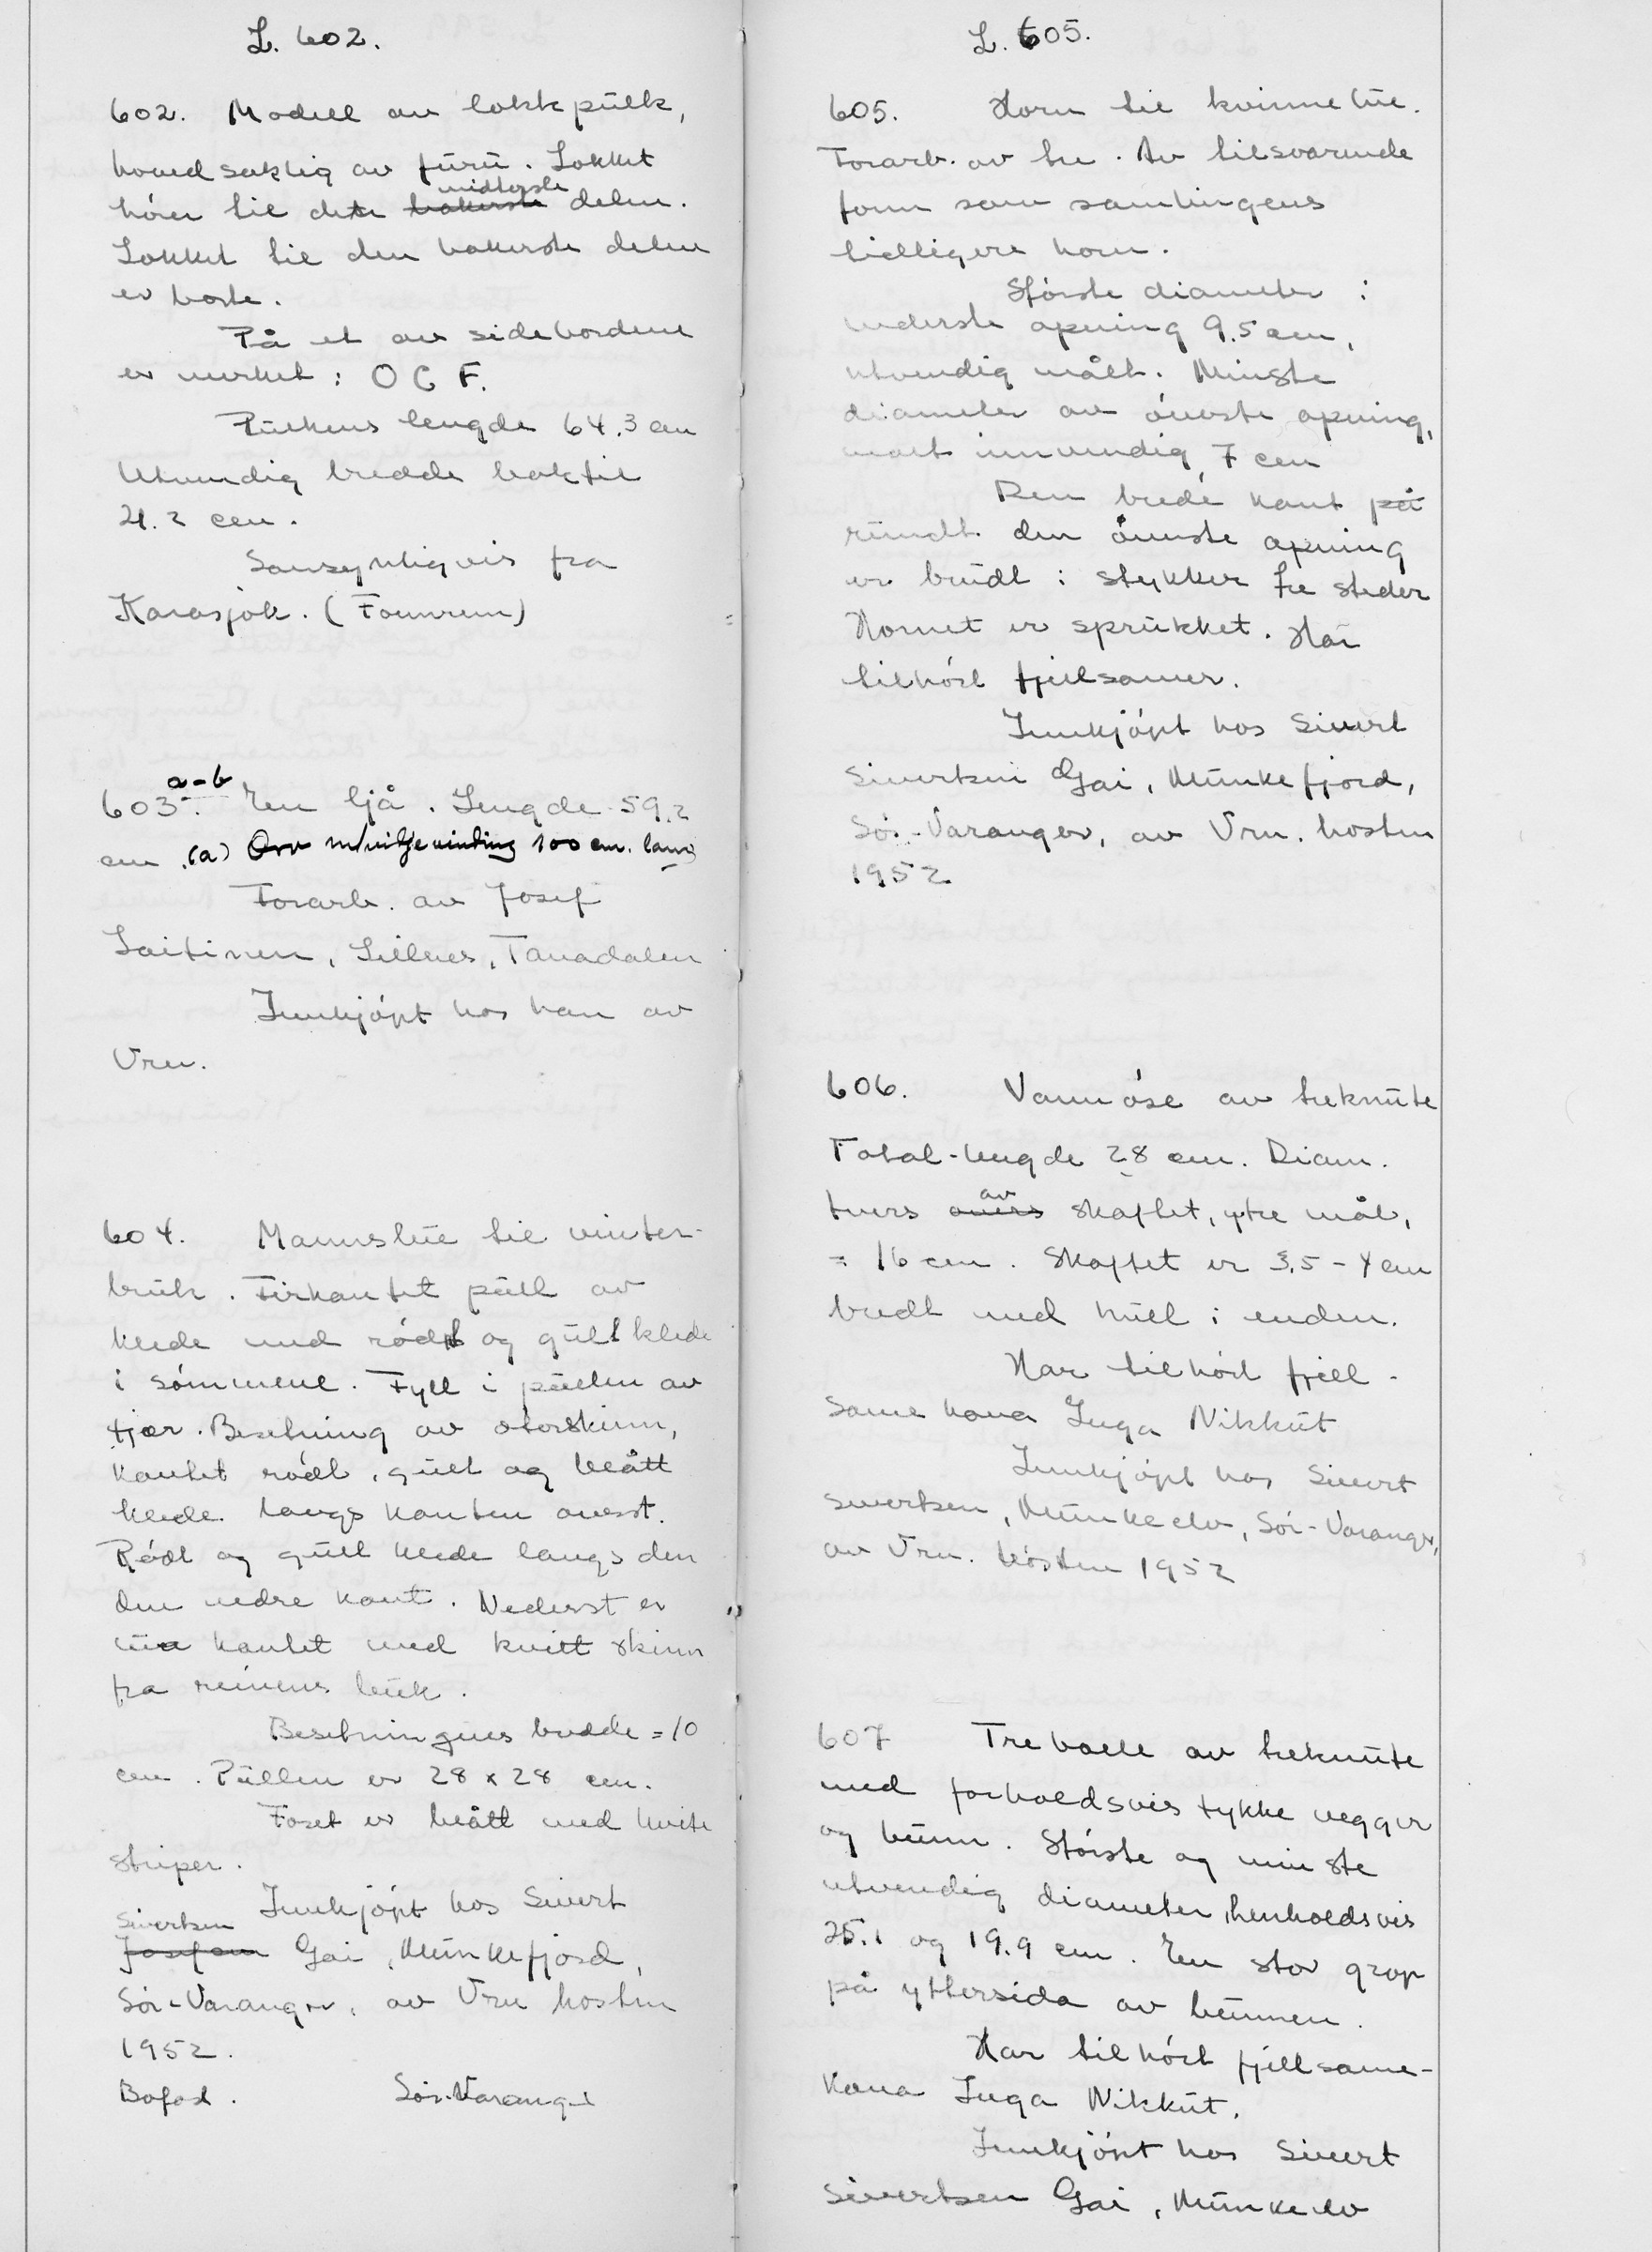 L. 602.
602. Modell av lokkpulk,
hovedsaklig av furu. Lokket
hører til den midterste delen.
Lokket til den bakerste delen
er borte.
På et av sidebordene
er merket: O G F.
Pulkens lengde 64.3 cm
Utvendig bredde baktil
21.2 cm.
Sansynligvis fra
Karasjok. (Fornrem)
603 a-b. En ljå. Lengde 59,2
cm (a) Orv m/viljevinding 100 cm. lang
Forarb. av Josef
Laitinen, Lillnes, Tanadalen
Innkjøpt hos han av
Vrn.
604. Mannslue til vinter-
bruk. Firkantet pull av
klede med rødt og gult klede
i sømmene. Fyll i pullen av
fjær. Besetning av oterskinn,
kantet rødt, gult og blått
klede langs kanten øverst.
Rødt og gult klede langs den
den nedre kant. Nederst er
lua kantet med kvitt skinn
fra reinens buk.
Besetningens bredde = 10
cm. Pullen er 28 x 28 cm.
Foret er blått med kvite
striper.
Innkjøpt hos Sivert
Sivertsen Gai, Munkefjord,
Sør-Varanger, av Vrn høsten
1952.
Bofast. Sør-Varanger
L. 605.
605. Horn til kvinnelue.
Forarb. av tre. Av tilsvarende
form som samlingens
tidligere horn.
Største diameter i
nederste åpning 9.5 cm,
utvendig målt. Minste
diameter av øverste åpning,
målt innvendig, 7 cm
Den brede kant på
rundt den øverste åpning
er brudt i stykker tre steder
Hornet er sprukket. Har
tilhørt fjellsamer.
Innkjøpt hos Sivert
Sivertsen Gai, Munkefjord,
Sør-Varanger, av Vrn. høsten
1952
606. Vannøse av treknute
Total-lengde 28 cm. Diam.
tvers av skaftet, ytre mål,
= 16 cm. Skaftet er 3,5 - 4 cm
bredt med hull i enden.
Har tilhørt fjell-
same kona Inga Nikkut
Innkjøpt hos Sivert
Sivertsen, Munkeelv, Sør-Varanger,
av Vrn. høsten 1952
607 Trebolle av treknute
med forholdsvis tykke vegger
og bunn. Største og minste
utvendig diameter, henholdsvis
25.1 og 19.9 cm. En stor grop
på yttersida av bunnen.
Har tilhørt fjellsame-
kona Inga Nikkut.
Innkjøpt hos Sivert
Sivertsen Gai, Munkeelv